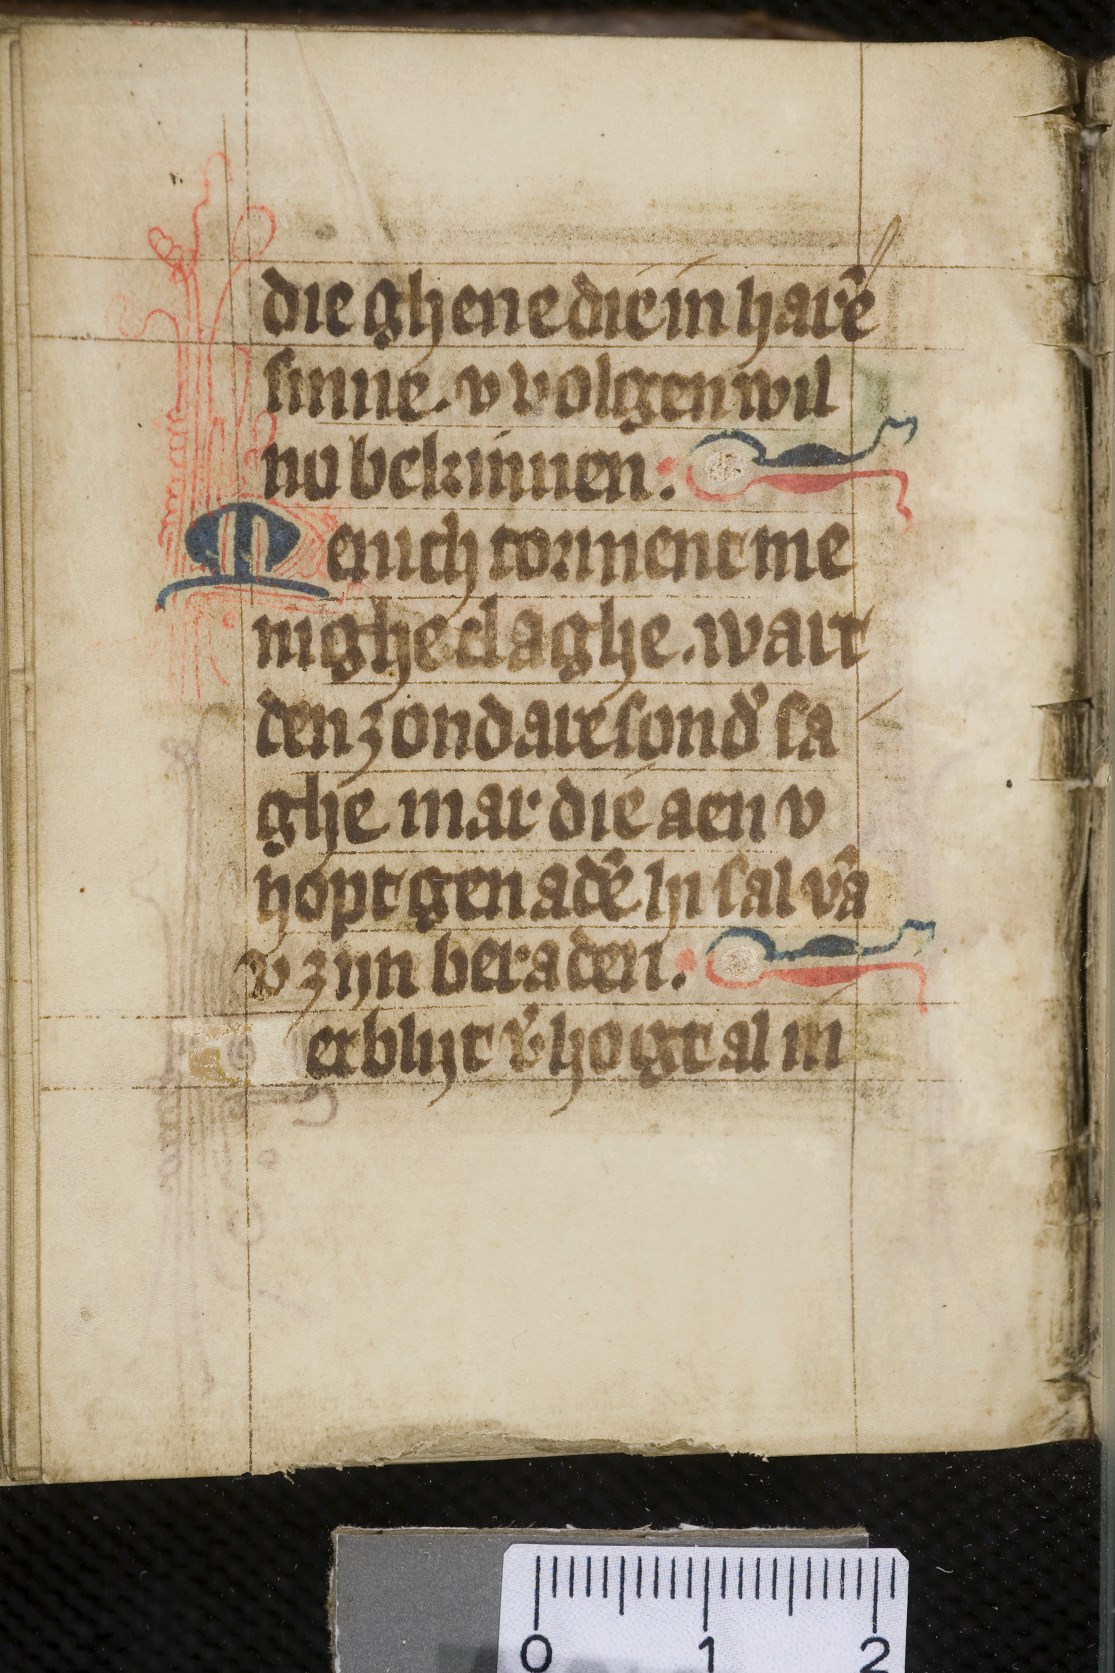 die ghene die in harē
sinne. v volgen wil
nv bekinnen.
Menich torment me
nighe claghe. wart
den zondare sond᷒ sa
ghe mar die aen v
hopt genadē hi sal vā
v zijn beraden.
erblijt v᷒ hogt al in
0 1 2